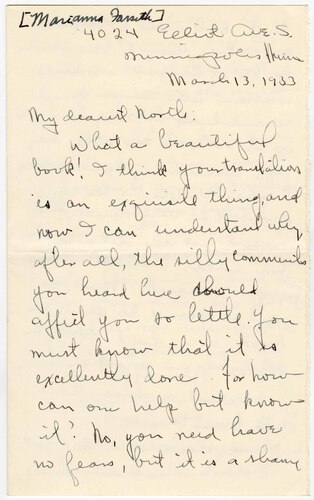 [Marianna Forseth]
4024 Elliot Ave. S.
Minneapolis Minn
March 13, 1933
My dearest North;
What a beautiful
book! I think your translation
is an exquisite thing, and
now I can understand why,
after all, the silly comments
you heard here should
affect you so little. You
must know that it is
excellently done. For how
can one help but know
it? No, you need have
no fears, but it is a shame